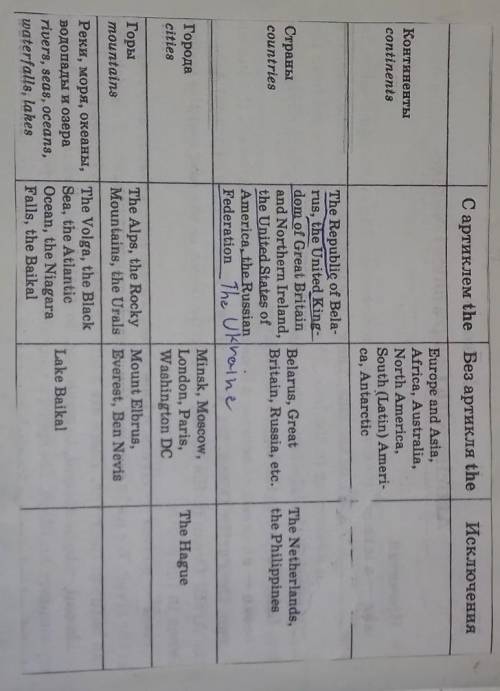 С артиклем the
Без артикля the
Исключения
Континенты
continents
Europe and Asia,
Africa, Australia,
North America,
South (Latin) Ameri-
ca, Antarctic
Страны
countries
The Republic of Bela-
rus, the United King-
dom of Great Britain
and Northern Ireland,
the United States of
America, the Russian
Federation The Ukraine
Belarus, Great
Britain, Russia, etc.
The Netherlands,
the Philippines
Города
cities
Minsk, Moscow,
London, Paris,
Washington DC
The Hague
Горы
mountains
The Alps, the Rocky
Mountains, the Urals
Mount Elbrus,
Everest, Ben Nevis
Реки, моря, океаны,
водопады и озера
rivers, seas, oceans,
waterfalls, lakes
The Volga, the Black
Sea, the Atlantic
Ocean, the Niagara
Falls, the Baikal
Lake Baikal